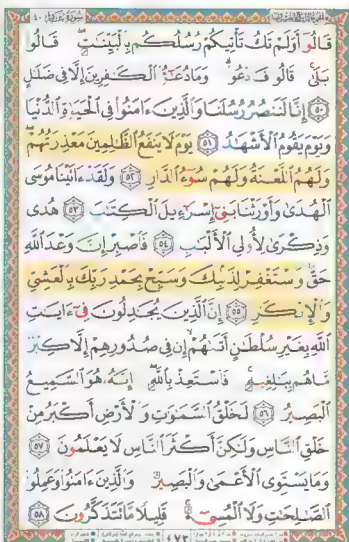 سورة غافر ٤٠
قَالُوٓا۟ أَوَلَمْ تَكُ تَأْتِيكُمْ رُسُلُكُم بِٱلْبَيِّنَٰتِ ۖ قَالُوا۟
بَلَىٰ ۚ قَالُوا۟ فَٱدْعُوا۟ ۗ وَمَا دُعَٰٓؤُا۟ ٱلْكَٰفِرِينَ إِلَّا فِى ضَلَٰلٍ
٥٠ إِنَّا لَنَنصُرُ رُسُلَنَا وَٱلَّذِينَ ءَامَنُوا۟ فِى ٱلْحَيَوٰةِ ٱلدُّنْيَا
وَيَوْمَ يَقُومُ ٱلْأَشْهَٰدُ ٥١ يَوْمَ لَا يَنفَعُ ٱلظَّٰلِمِينَ مَعْذِرَتُهُمْ ۖ
وَلَهُمُ ٱللَّعْنَةُ وَلَهُمْ سُوٓءُ ٱلدَّارِ ٥٢ وَلَقَدْ ءَاتَيْنَا مُوسَى
ٱلْهُدَىٰ وَأَوْرَثْنَا بَنِىٓ إِسْرَٰٓءِيلَ ٱلْكِتَٰبَ ٥٣ هُدًى
وَذِكْرَىٰ لِأُو۟لِى ٱلْأَلْبَٰبِ ٥٤ فَٱصْبِرْ إِنَّ وَعْدَ ٱللَّهِ
حَقٌّ وَٱسْتَغْفِرْ لِذَنۢبِكَ وَسَبِّحْ بِحَمْدِ رَبِّكَ بِٱلْعَشِىِّ
وَٱلْإِبْكَٰرِ ٥٥ إِنَّ ٱلَّذِينَ يُجَٰدِلُونَ فِىٓ ءَايَٰتِ
ٱللَّهِ بِغَيْرِ سُلْطَٰنٍ أَتَىٰهُمْ ۙ إِن فِى صُدُورِهِمْ إِلَّا كِبْرٌ
مَّا هُم بِبَٰلِغِيهِ ۚ فَٱسْتَعِذْ بِٱللَّهِ ۖ إِنَّهُۥ هُوَ ٱلسَّمِيعُ
ٱلْبَصِيرُ ٥٦ لَخَلْقُ ٱلسَّمَٰوَٰتِ وَٱلْأَرْضِ أَكْبَرُ مِنْ
خَلْقِ ٱلنَّاسِ وَلَٰكِنَّ أَكْثَرَ ٱلنَّاسِ لَا يَعْلَمُونَ ٥٧
وَمَا يَسْتَوِى ٱلْأَعْمَىٰ وَٱلْبَصِيرُ وَٱلَّذِينَ ءَامَنُوا۟ وَعَمِلُوا۟
ٱلصَّٰلِحَٰتِ وَلَا ٱلْمُسِىٓءُ ۚ قَلِيلًا مَّا تَتَذَكَّرُونَ ٥٨
٤٧٣